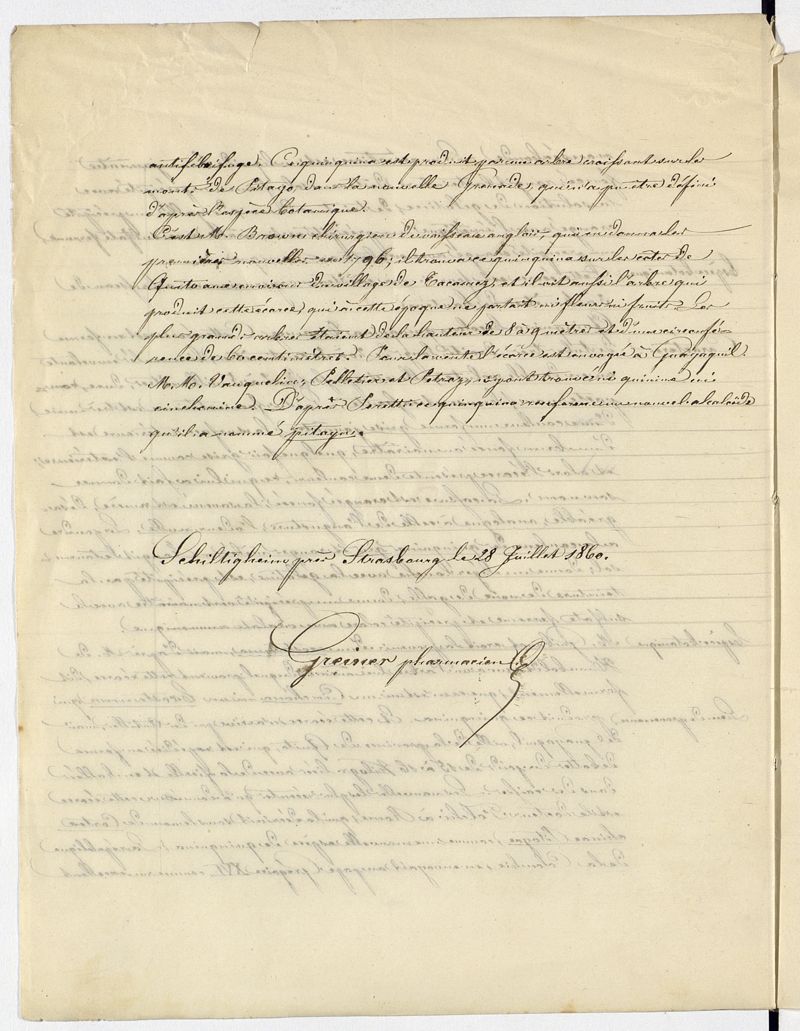 antifébrifuge. Ce quinquina est produit par une arbre croissant sur le
mont de Pitayo, dans la nouvelle Grenade, qui n'a pu être défini
d'après l'espèce botanique.
C'est M. Brown chirurgien du vaisseau anglais, qui en donna les
premières nouvelles en 1796; il trouva ce quinquina sur les côtes de
Quito aux environs du village de Tacamez, et il vit aussi l'arbre qui
produit cette écorce, qui à cette époque ne portait ni fleurs ni fruits. Les
plus grands arbres étaient de la hauteur de 8 à 9 mètres et d'une circonfé-
rence de 60 centimètres. Pour la vente l'écorce est envoyée à Guayaquil.
M. M. Vauquelin, Pelletier et Petroz, n'y ont trouvé ni quinine ni
cinchonine. D'après Peretti ce quinquina renferme un nouvel alcaloïde
qu'il a nommé pitayne.
Schiltigheim près Strasbourg le 28 Juillet 1860.
Greiner pharmacien